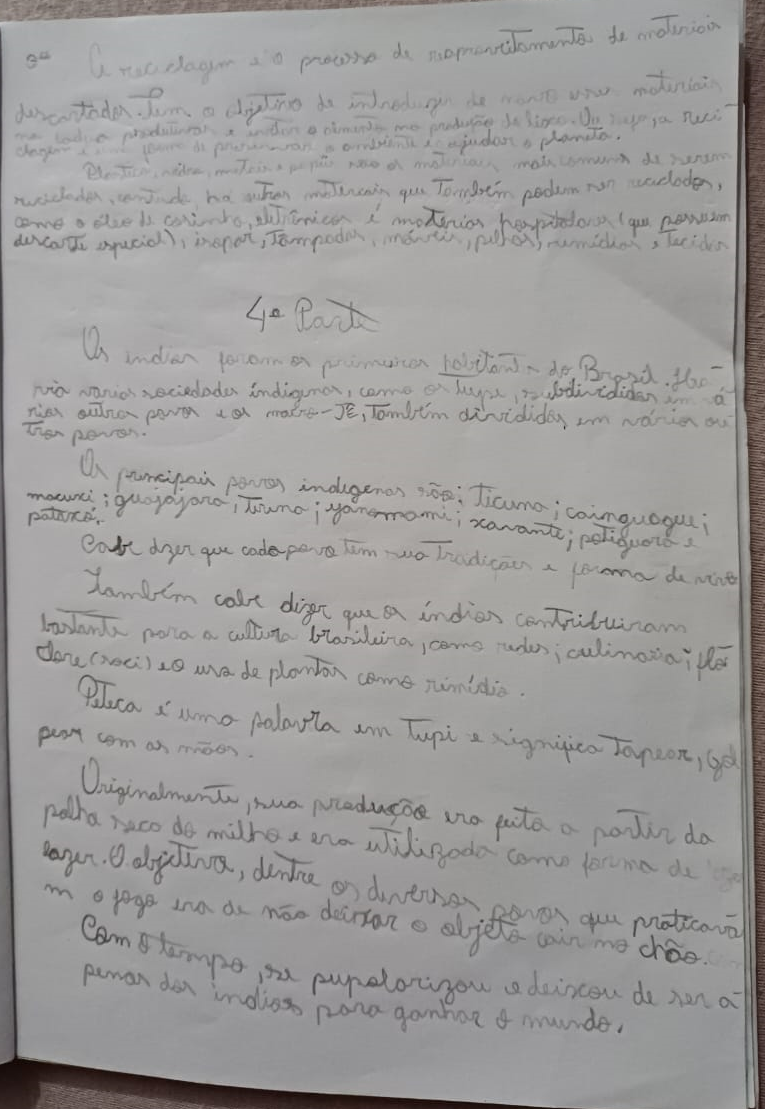 3ª A reciclagem é o processo de reaproveitamento de materiais
descartados. Tem o objetivo de introduzir de novo esses materiais
na cadia produtiva e evitar o aumento na produção de lixo. Ou seja, a reci-
clagem é uma forma de preservar o ambiente e ajudar o planeta.
Plástico, vidro, metais e papéis são os materiais mais comuns de serem
reciclados, contudo, há outros materiais que também podem ser reciclados,
como o óleo de cozinha, eletrônicos é materias hospitalares (que possuem
descarte especial), isopor, tampodas, móveis, pilhas, remídios e tecidos
4ª Parte
Os índios foram os primeiros habitante do Brasil. Ha-
via varias sociedades índigenas, como os tupi, subdivididas em vá
rios outros povos e os macro-JÊ, também divididos em vários ou
tros povos.
Os principais povos indigenas são; ticuna; cainguague;
macuxi; guajajara, Teruna; yanomami; xavante; potiguara e
pataxó.
Cabe dizer que cada povo tem sua tradições e forma de vive
Também cabe dizer que os índios contribuiram
bastante para a cultura brasileira, como redes; culinaria; flo
clore (saci) e o uso de plantas como rimídio.
Peteca é uma palavra em tupi e significa tapear, gol
pear com as mãos.
Originalmente, sua produção era feita a partir da
palha seca do milho e era utilizada como forma de
lazer. O objetivo, dentre os diversos povos que praticava
m o jogo era de não deixar o objeto cair no chão.
Com o tempo, se pupolarizou e deixou de ser a-
penas dos índios para ganhar o mundo.